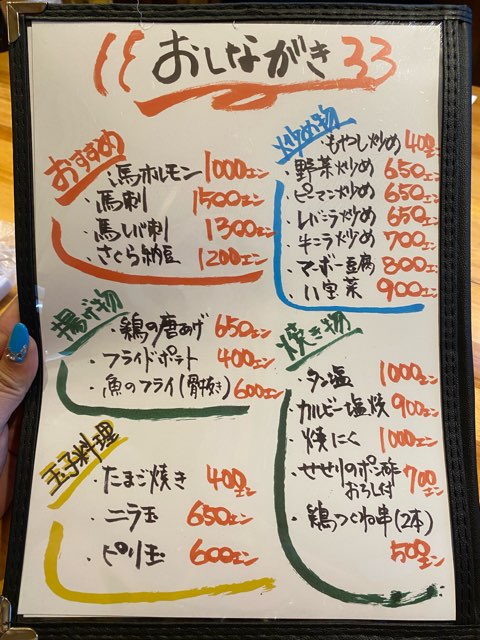 おしながき
おすすめ
・馬ホルモン 1000エン
・馬刺 1500エン
・馬レバ刺 1300エン
・さくら納豆 1200エン
炒め物
・もやし炒め 400エン
・野菜炒め 650エン
・ピーマン炒め 650エン
・レバニラ炒め 650エン
・牛ニラ炒め 700エン
・マーボー豆腐 800エン
・八宝菜 900エン
揚げ物
・鶏の唐あげ 650エン
・フライドポテト 400エン
・魚のフライ(骨抜き) 600エン
焼き物
・タン塩 1000エン
・カルビー塩焼 900エン
・焼にく 1000エン
・せせりのポン酢 700エン
おろし付
・鶏つくね串(2本)
500エン
玉子料理
・たまご焼き 400エン
・ニラ玉 650エン
・ピリ玉 600エン